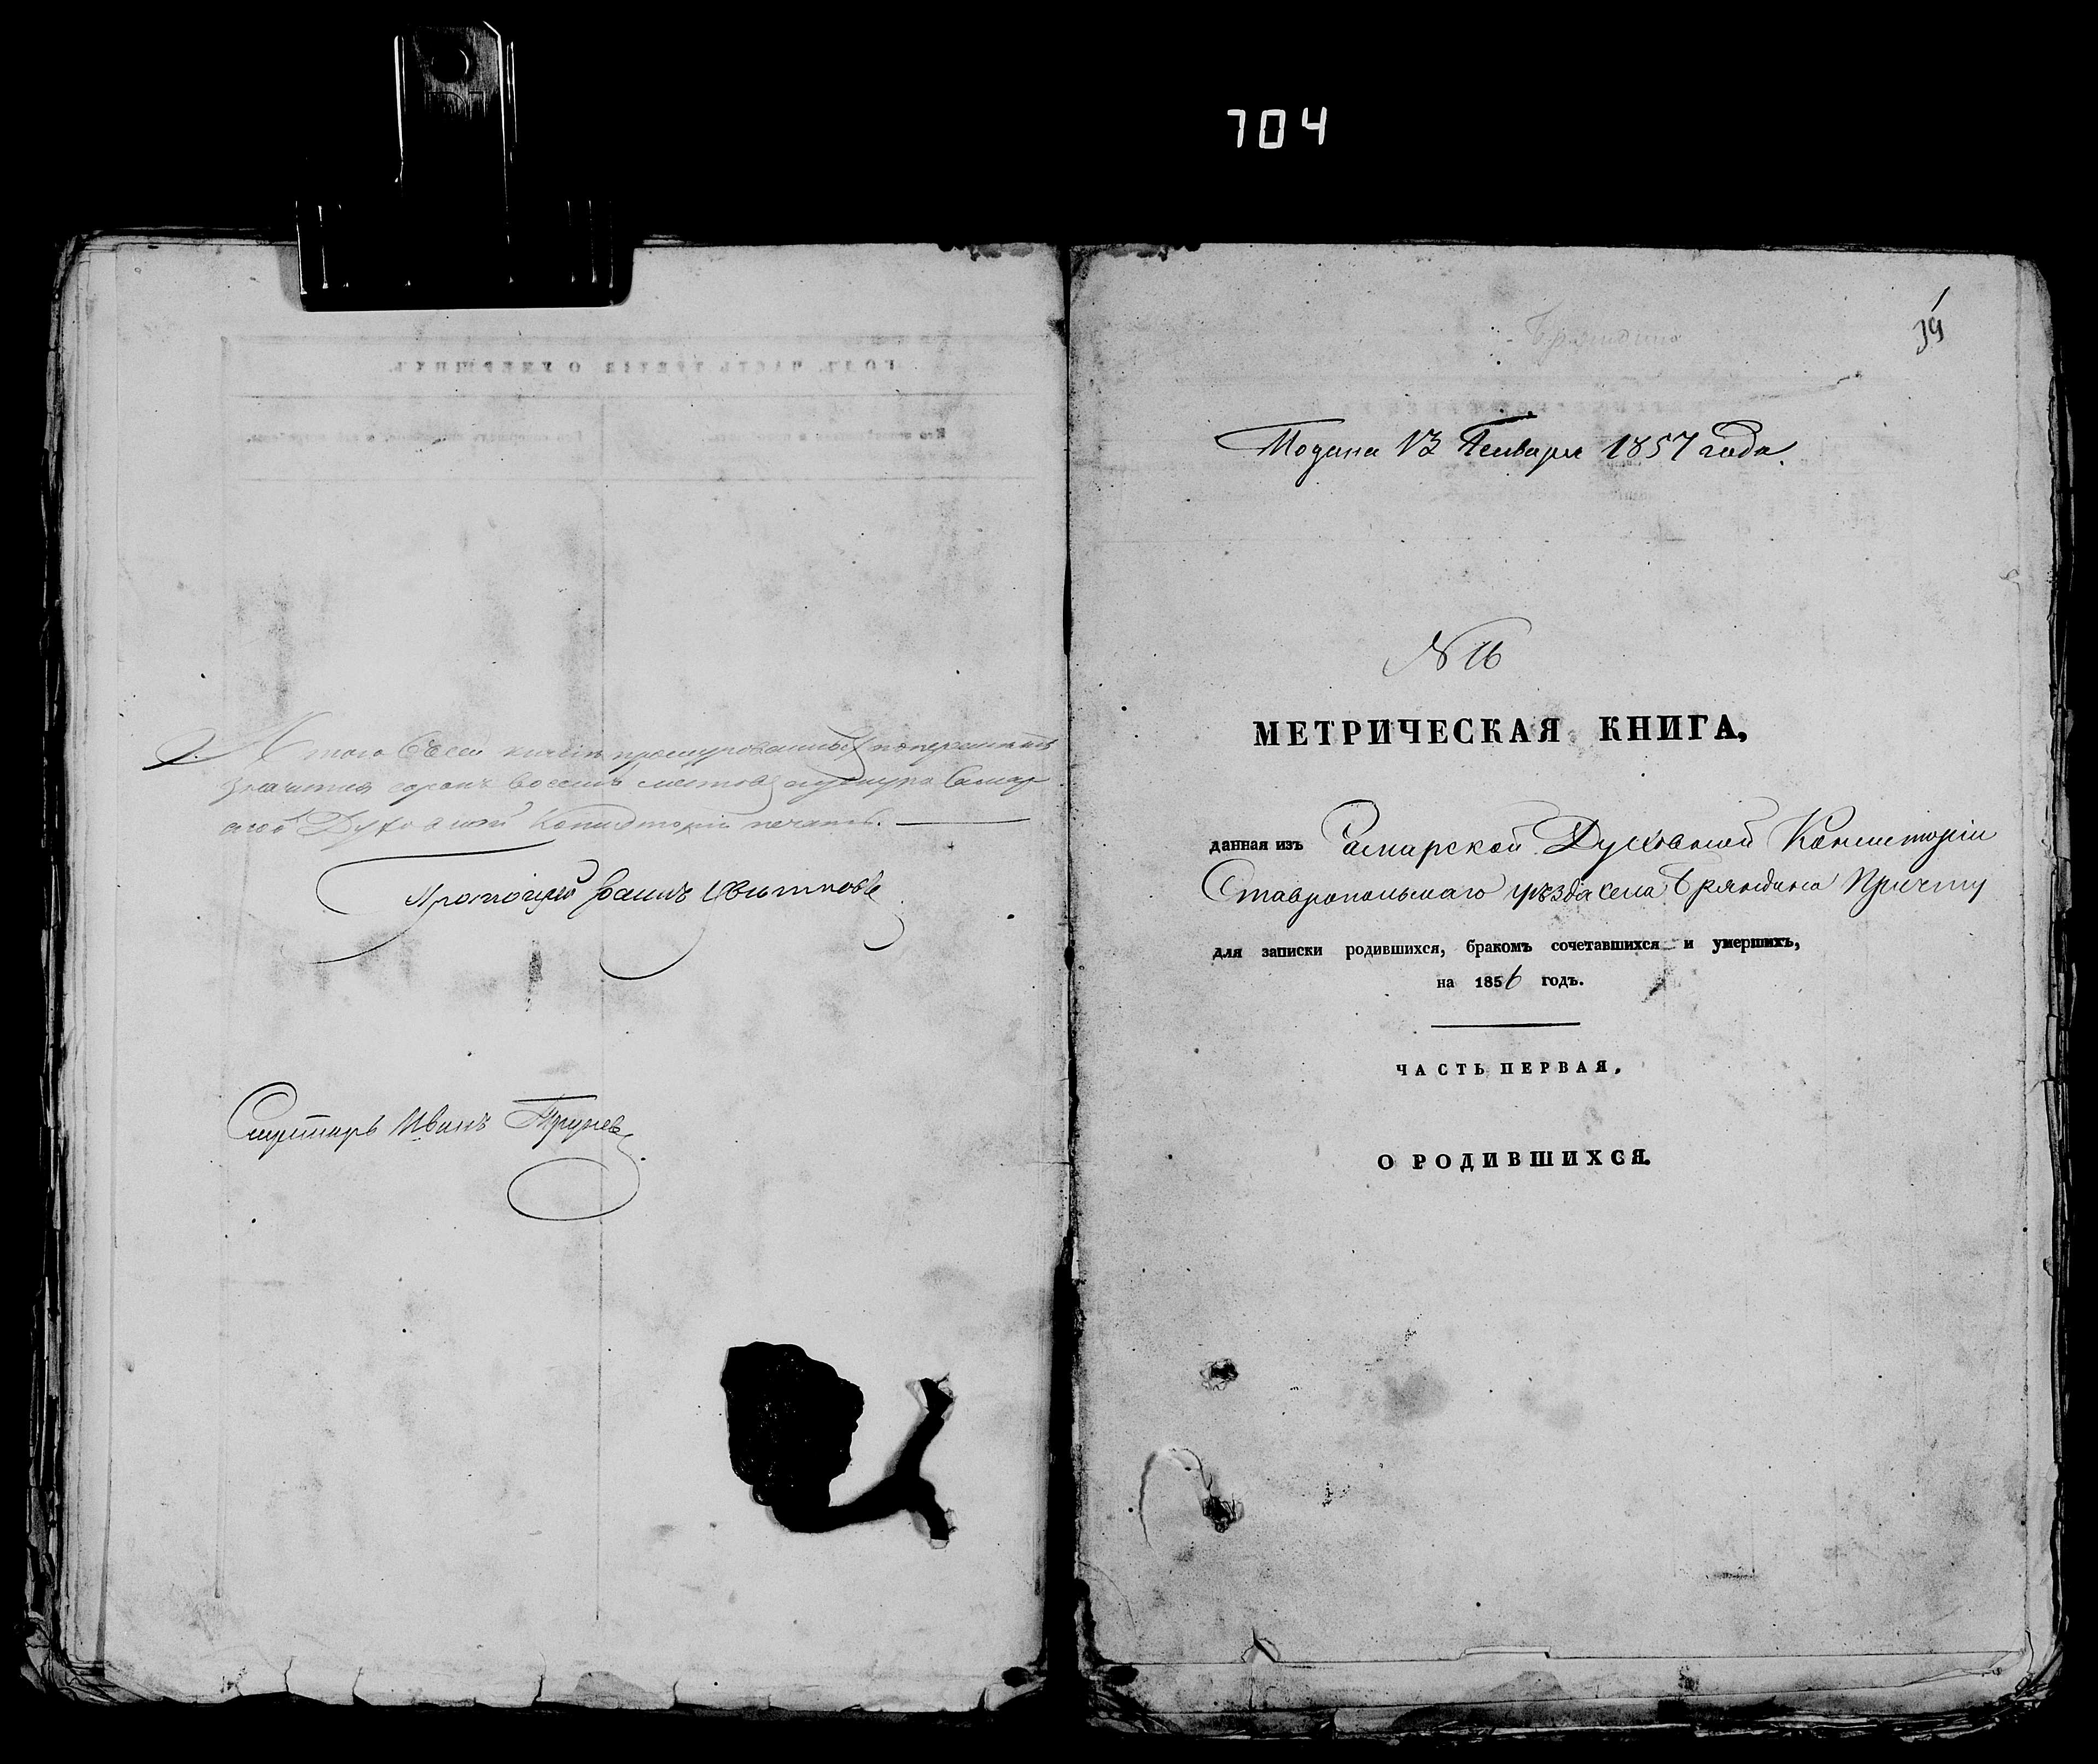 704
А того въ сей книгѣ прошнурованныхъ и поперемѣченныхъ
значится сорокъ восемь листовъ, къ шнуру Самар
ской Духовной Консисторіи печать.
Протоіерей Іоаннъ Цвѣтковъ
Секретарь Иванъ
Бряндино
Подана 13 Января 1857 года.
N 16
МЕТРИЧЕСКАЯ КНИГА,
данная изъ Самарской Духовной Консисторіи
Ставропольскаго уѣзда села Бряндина Причту
для записки родившихся, бракомъ сочетавшихся и умершихъ,
на 1856 годъ.
ЧАСТЬ ПЕРВАЯ,
О РОДИВШИХСЯ.